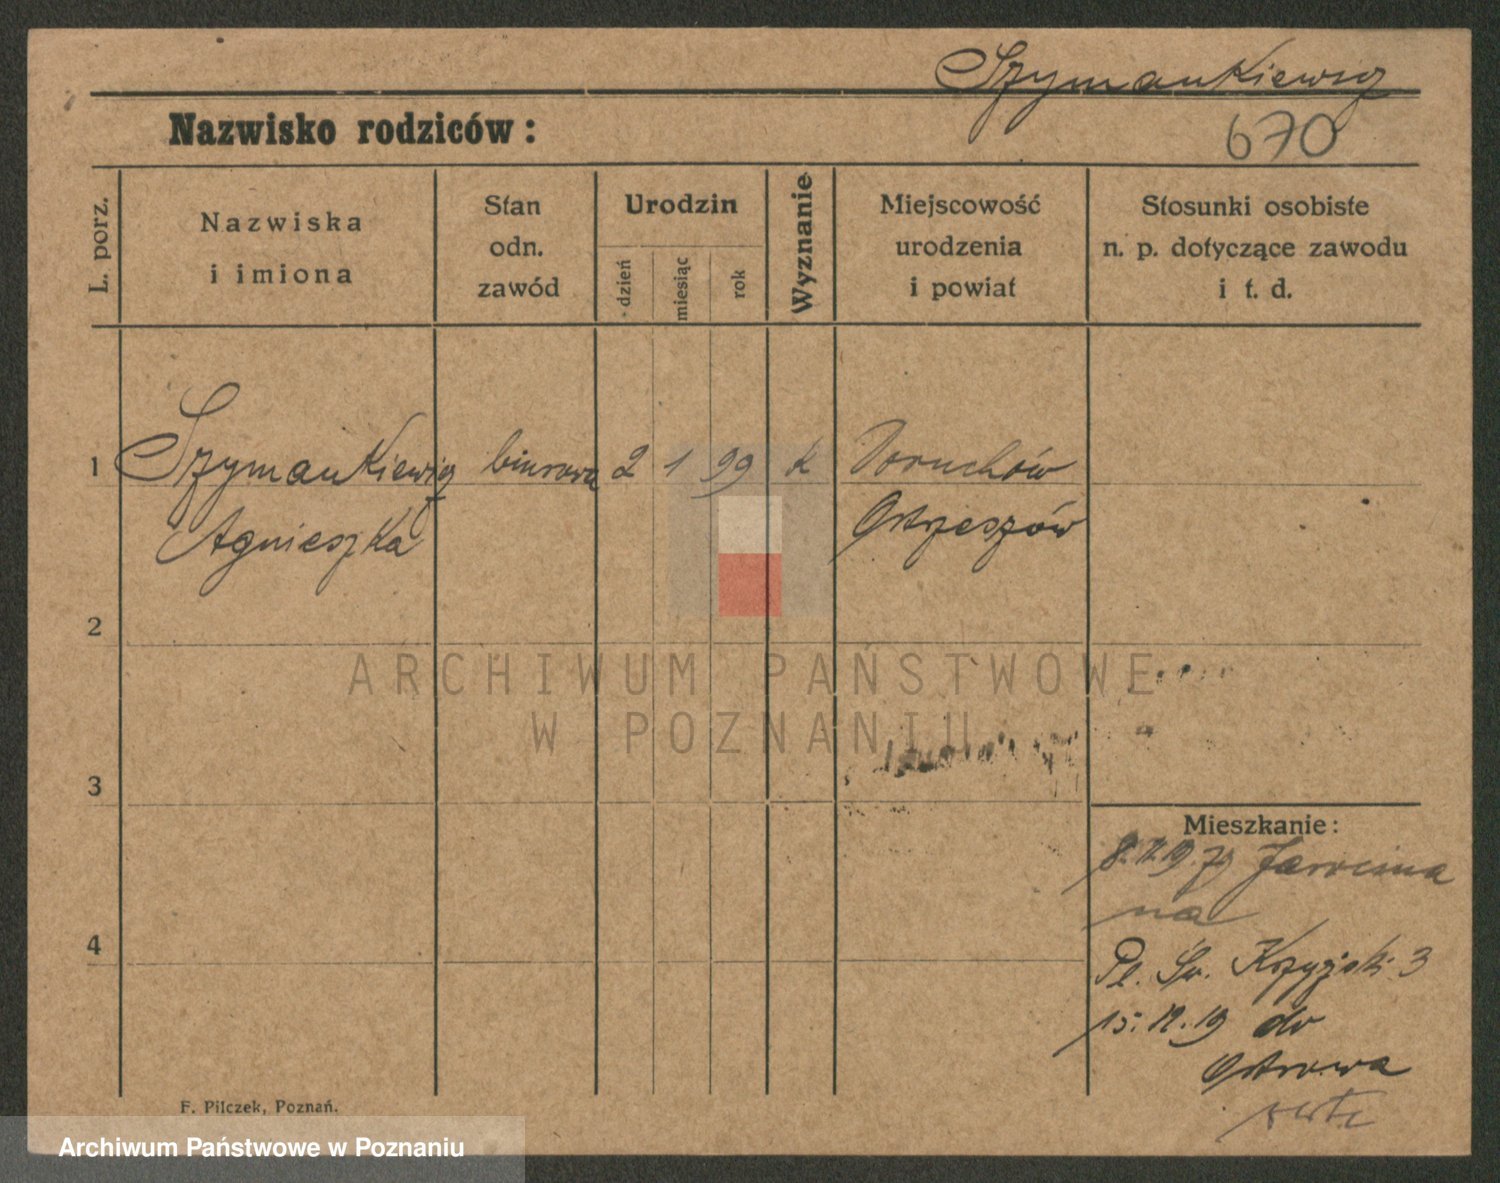 Szymankiewicz
Nazwisko rodziców:
670
L. porz.
Nazwiska
i imiona
Stan
odn.
zawód
Urodzin
dzień
miesiąc
rok
Wyznanie
Miejscowość
urodzenia
i powiat
Stosunki osobiste
n. p. dotyczące zawodu
i t. d.
1 Szymankiewicz biurowa 2 1 99 k Doruchów
Agnieszka Ostrzeszów
2
ARCHIWUM PAŃSTWOWE
W POZNANIU
3
Mieszkanie:
z Jarocina
na
4
Pl. Św. Krzyski 3
15.12.19 do
Ostrowa
F. Pilczek, Poznań.
Archiwum Państwowe w Poznaniu